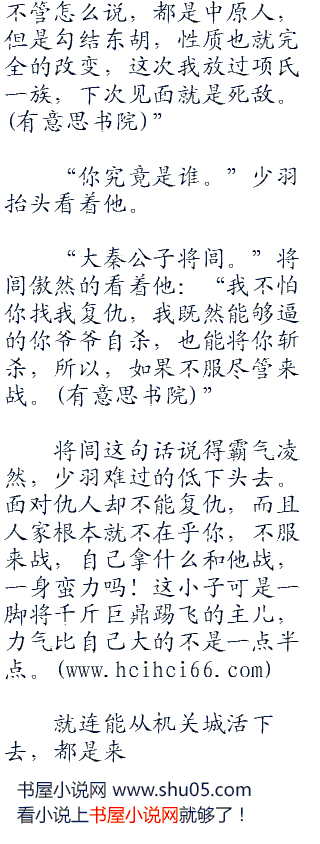 不管怎么说，都是中原人，
但是勾结东胡，性质也就完
全的改变，这次我放过项氏
一族，下次见面就是死敌。
(有意思书院)”
“你究竟是谁。”少羽
抬头看着他。
“大秦公子将闾。”将
闾傲然的看着他：“我不怕
你找我复仇，我既然能够逼
的你爷爷自杀，也能将你斩
杀，所以，如果不服尽管来
战。(有意思书院)”
将闾这句话说得霸气凌
然，少羽难过的低下头去。
面对仇人却不能复仇，而且
人家根本就不在乎你，不服
来战，自己拿什么和他战，
一身蛮力吗！这小子可是一
脚将千斤巨鼎踢飞的主儿，
力气比自己大的不是一点半
点。(www.hcihci66.com)
就连能从机关城活下
去，都是来
书屋小说网 www.shu05.com
看小说上书屋小说网就够了！